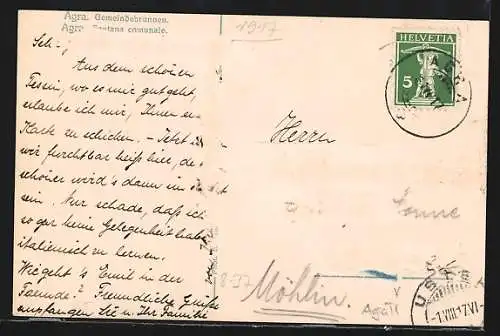 Agra. Gemeindebrunnen.
Agra. Fontana comunale.
1917
HELVETIA
5
AGRA
Aus dem schönen
Tessin, wo es mir gut geht,
erlaube ich mir, Ihnen
Karte zu schicken. – Jetzt ist
wir furchtbar heiß hier,
schöner wird's dann im
sein. Nur schade, daß ich
so gar keine Gelegenheit habe
italienisch zu lernen.
Wie geht's Emil in der
Fremde? Freundliche Grüße
empfangen Sie u. Ihr Familie
Herrn
Sonne
Möhlin.
Agra
-1.VIII.17.VI-